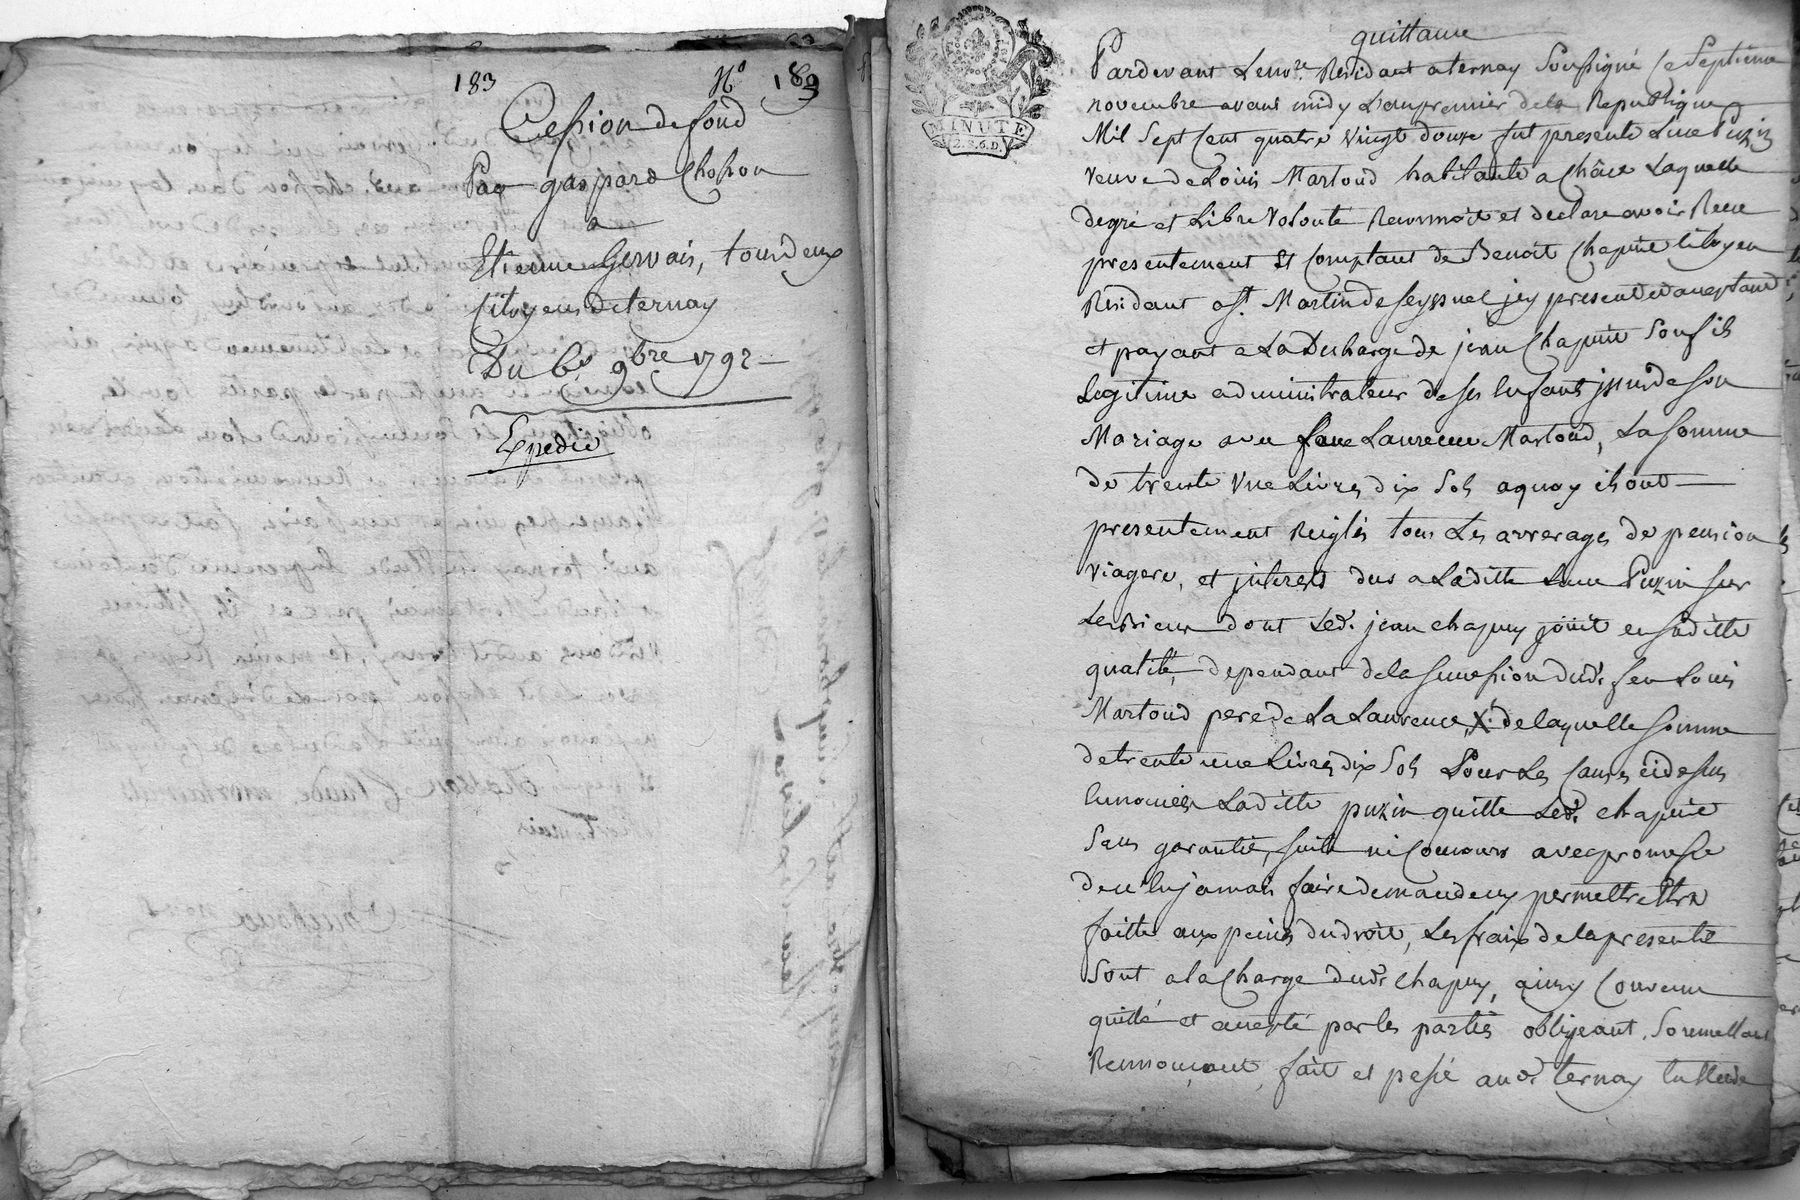 183
N° 189
Cession de fond
Par gaspard Chosson
a
Etienne Gervais, tous deux
Citoyens de ternay
Du 6 9bre 1792
Expedié
MINUTE
2.S.6.D.
quittance
Pardevant Le nore. Residant a ternay Soussigné Ce Septieme
novembre avant midy L'an premier de la Republique
Mil Sept Cent quatre vingt douze fut presente Luce Puzin
veuve de Louis Martoud habitante a Châce Laquelle
de gré et Libre Volonté Reconnoit et declare avoir Recu
presentement et Comptant de Benoit Chapuie Citoyen
Residant a St. Martin de Seyssuel jcy present et acceptant
et payant a La Decharge de jean Chapuie Son fils
Legitime administrateur de ses Enfants jssus de son
Mariage avec feue Laurence Martoud, La somme
de trente Une Livres dix Sols a quoy ils ont
presentement Reiglés tous Les arrerages de pension
viagere, et jnterets dus a Laditte Luce Puzin sur
Les biens dont Led. jean chapuy joüit en sa ditte
qualité, dependant de la succession dud. feu Louis
Martoud pere de La Laurence X. de laquelle somme
de trente une Livres dix Sols Pour Les Causes cidessus
Enoncées Laditte puzin quitte Led. chapuie
Sans garantie, suite ni Concours avec promesse
de n'en jamais faire demande ny permettre Etre
faitte aux peines du droit, Les frais de la presente
Sont a la Charge dud. chapuy, ainsy Convenu
quitté et accepté par les parties obligeant, Soumettant
Rennonçant, fait et passé aud. ternay Etude